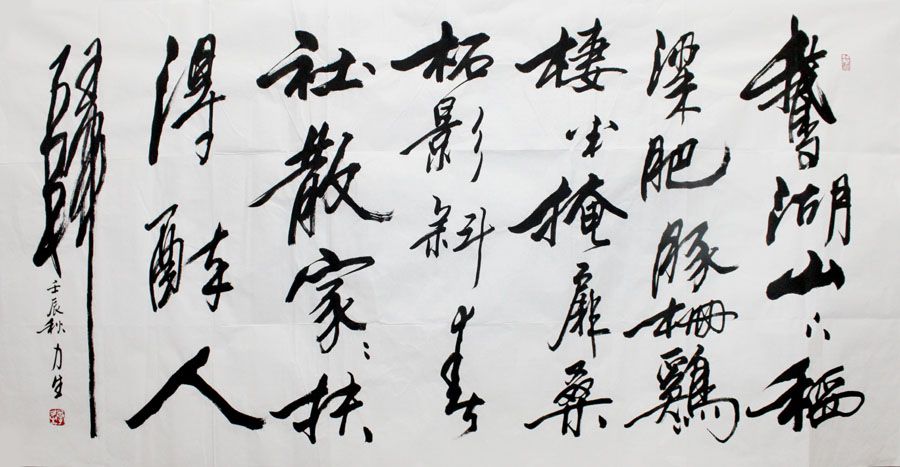 鵞湖山下稻
梁肥豚柵鷄
棲半掩扉桑
柘影斜春
社散家〻扶
得醉人
歸
壬辰秋 力生